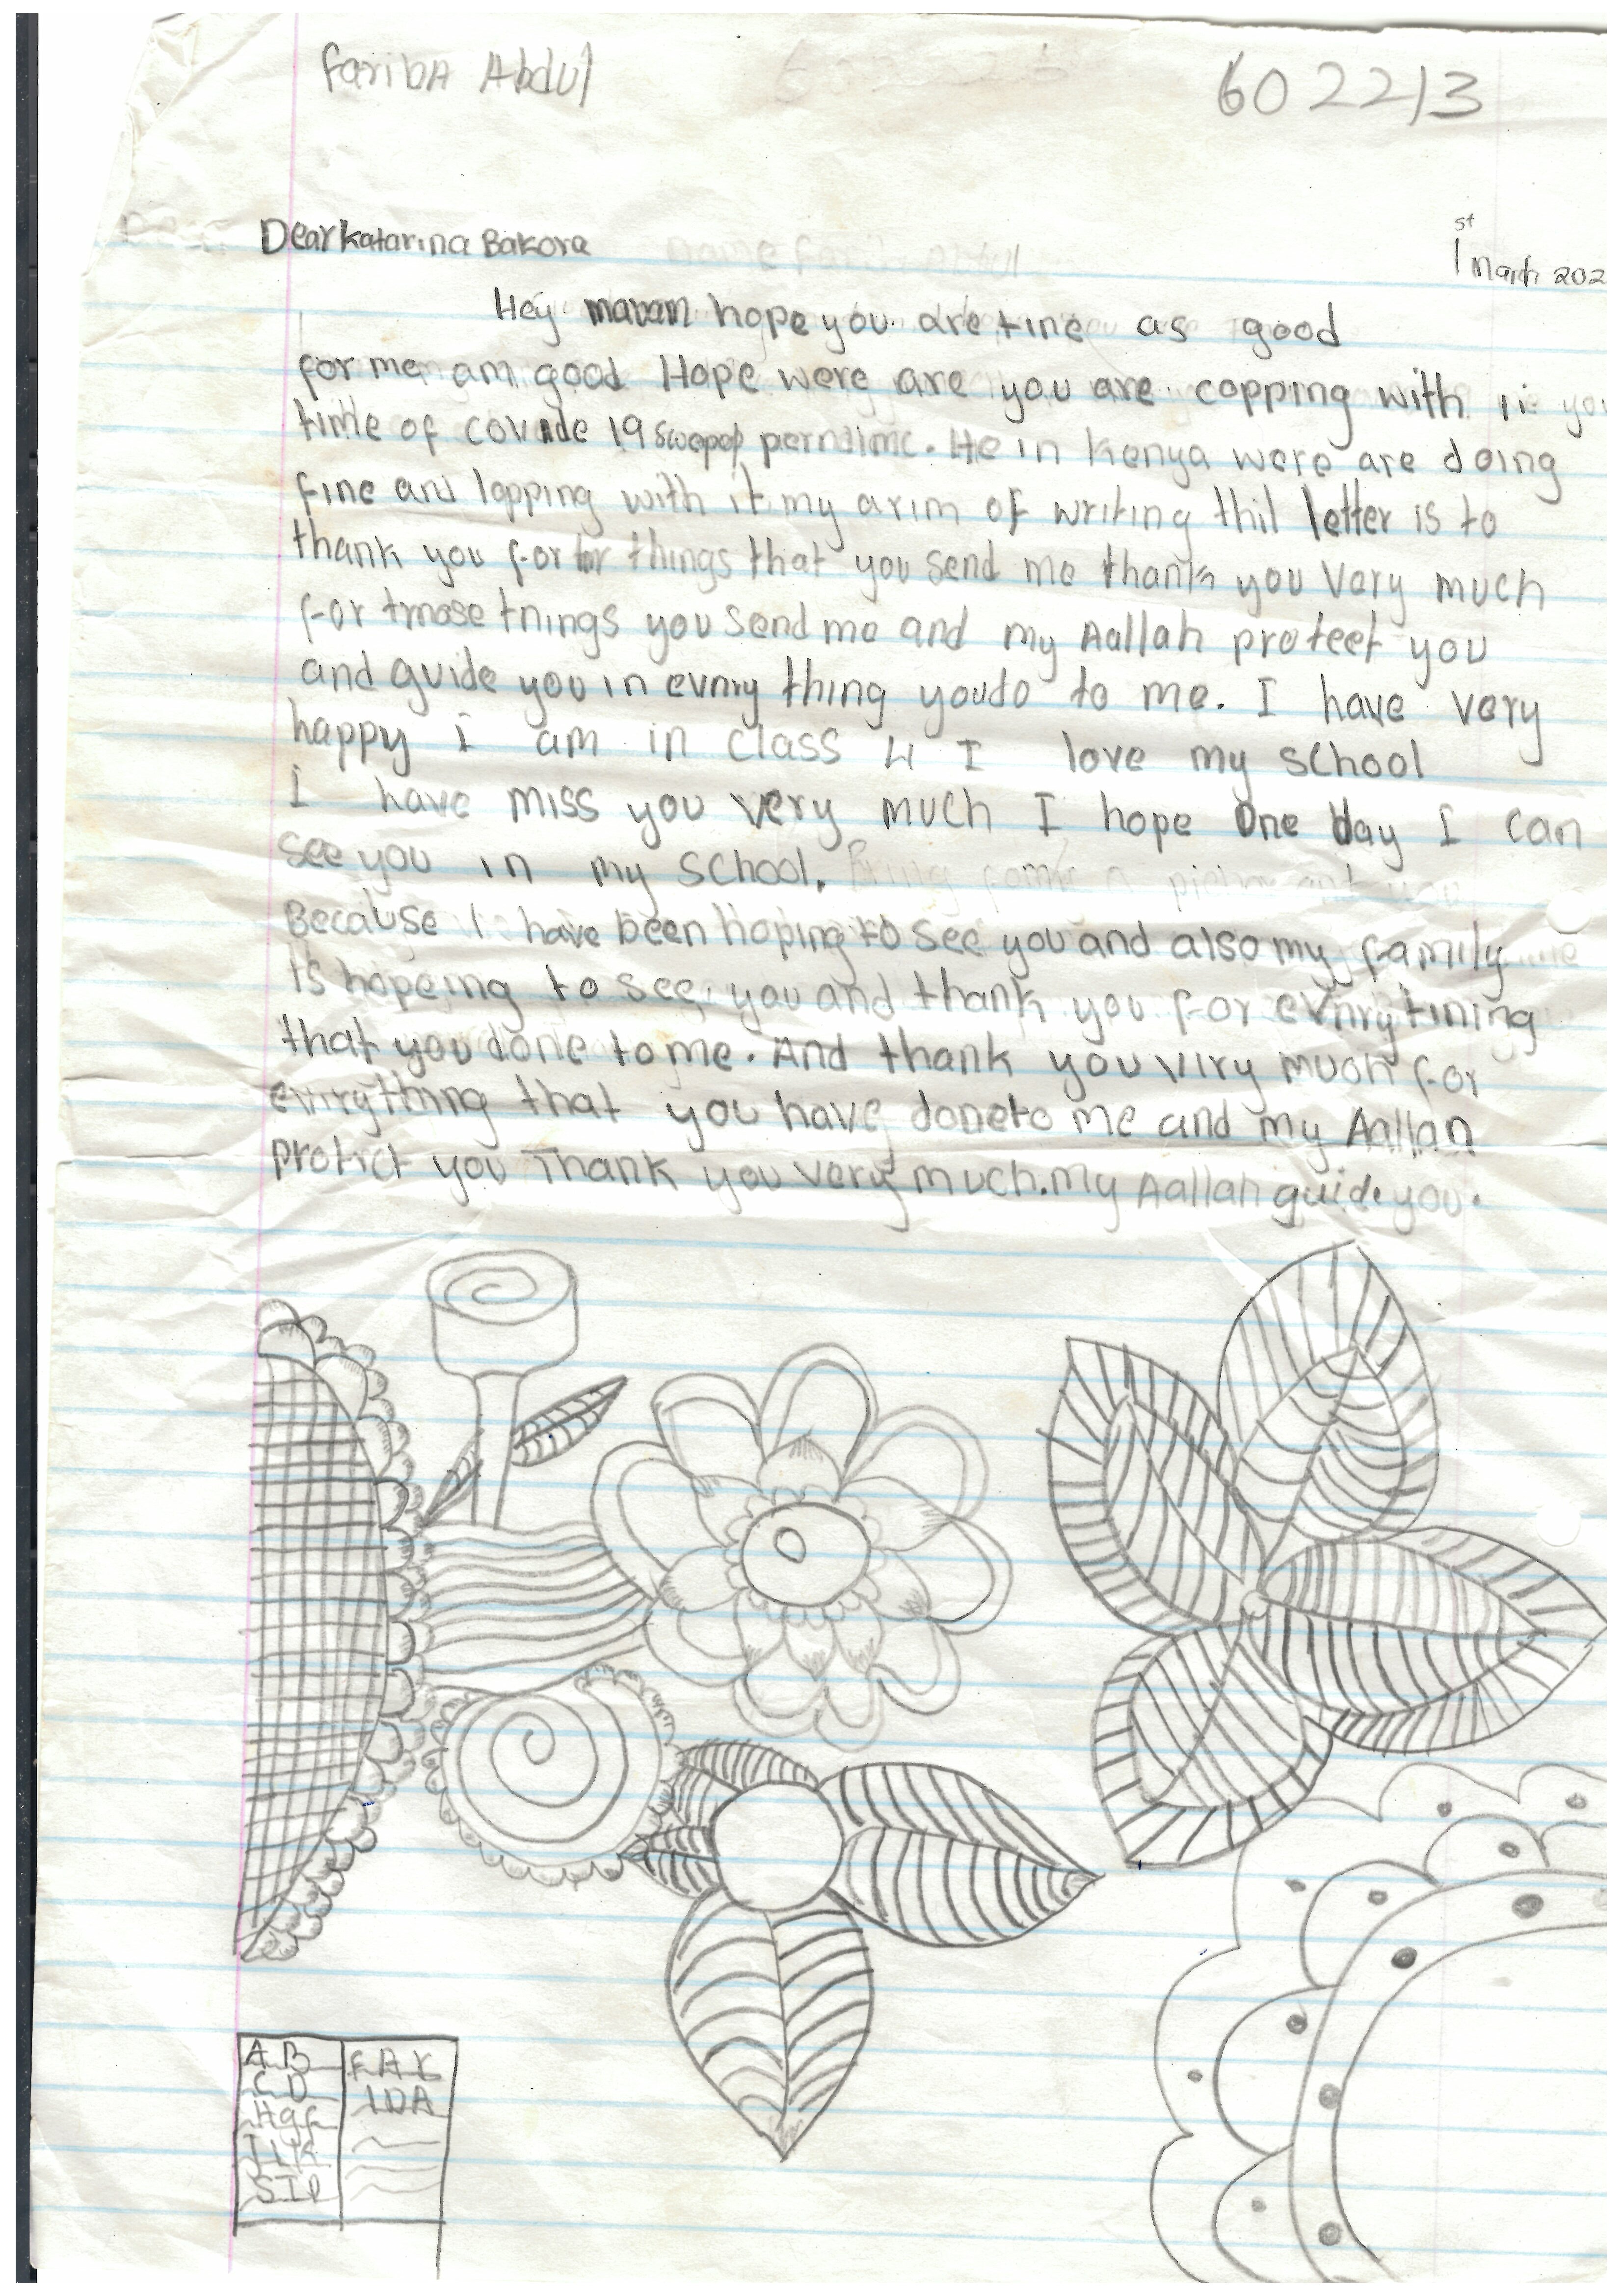 fariba Abdul
602213
Dear Katarina Bakora
1st March 202
Hey hope you are fine as good
for me am good Hope were are you are copping with
time of covide 19 perndimc. He in Kenya were are doing
fine and lopping with it my arim of writing thil letter is to
thank you for things that you send me thank you Very much
for tmose tnings you send me and my Aallah protect you
and guide you in evnry thing you do to me. I have very
happy i am in class 4 I love my school
I have miss you very much I hope One day I can
see you in my school.
Because I have been hoping to see you and also my family
is hopeing to see you and thank you for evnrytining
that you done to me. And thank you viry much for
evnrything that you have done to me and my Aallan
protict you Thank you very much. My Aallah guide you.
A B
C D
FAR
IDA